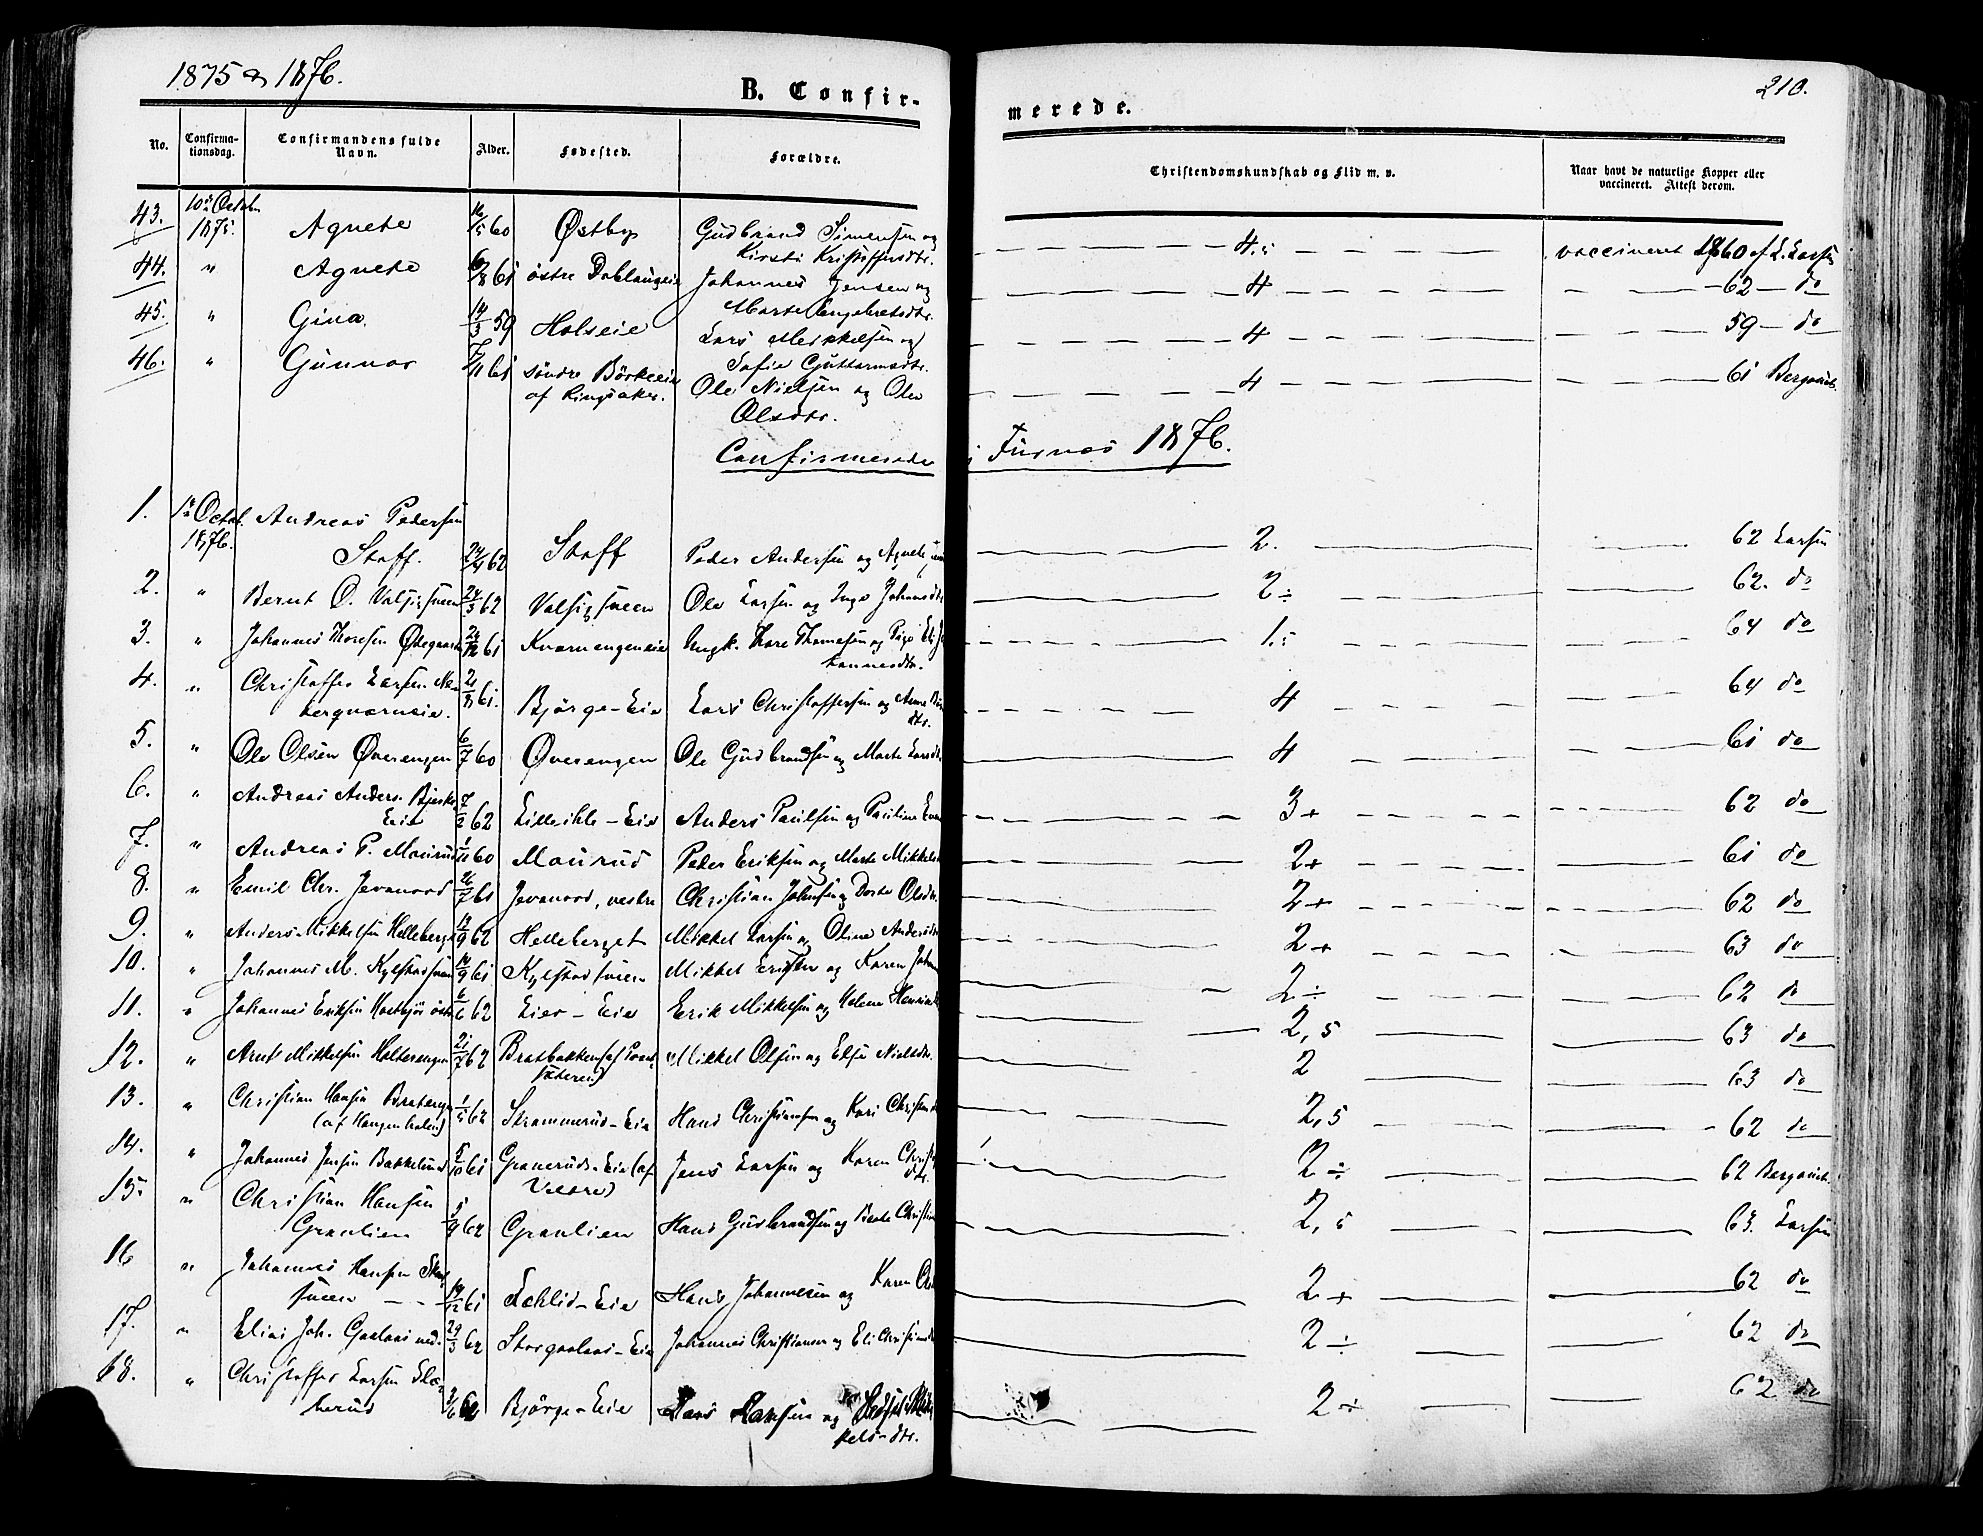 1875 og 1876.
B. Confir-
merede.
210.
No.
Confirma-
tionsdag.
Confirmandens fulde
Navn.
Alder.
Fødested.
Forældre.
Christendomskundskab og Flid m. v.
Naar havt de naturlige Kopper eller
vaccineret. Attest derom.
43. 10de Octobr 1875. Agnete 16/5 60 Østby Gudbrand Simensen og
Kirsti Kristoffersdtr. 4.÷ vaccineret 1860 af L. Larsen
44. " Agnete 61 østre Dæhlingeie Johannes Jensen og
Marte Engebretsdtr. 4 62 do
45. " Gina 14/3 59 Holseie Lars Mikkelsen og
Sofie Guttormsdtr. 4 59 do
46. " Gunnar 61 søndre Börkeeie
af Ringsaker. Ole Nielsen og Olea
Olsdtr. 4 61 Bergseth
Confirmerede i Furnes 1876.
1. 1ste Octob. 1876. Andreas Pedersen
Staff. 62 Staff Peder Andersen og Agnete 2. 62 Larsen
2. " Bernt O. Valsigsveen 24/3 62 Valsigsveen Ole Larsen og Inge Johansdtr 2÷ 62. do
3. " Johannes Thoresen Ødegaarden 61 Kværnengeneie Ungk. Thore Thomesen og Pige Eli Jo-
hannesdtr. 1.÷ 64 do
4. " Christoffer Larsen
bergværneie. 61. Bjørge-Eie Lars Christoffersen og Anne
dtr. 4 64 do
5. " Ole Olsen Øverengen 6/7 60 Øverengen Ole Gudbrandsen og Marte Larsdtr. 4 61 do
6. " Andreas Anders. Bjerke
Eie 7/2 62 Lilleihle-Eie Anders Paulsen og Pauline 3+ 62 do
7. " Andreas P. Maurud 60 Maurud Peder Eriksen og Marte Mikkels 2+ 61 do
8. " Emil Chr. Jevanord 26/7 61 Jevanord, vestre Christian Johnsen og Dorte Olsdtr. 2+ 62 do
9. " Anders Mikkelsen Helleberget 62 Helleberget Mikkel Larsen og Oline Andersdtr 2+ 63 do
10. " Johannes M. Kylstadsveen 61 Kylstadsveen Mikkel Eriksen og Karen Johan 2÷ 62 do
11. " Johannes Eriksen østre 6/6 62 Lier-Eie Erik Mikkelsen og Helene Henriks 2,5 63 do
12. " Arnt Mikkelsen Halterengen 21/7 62 Bratbakken (af
sæteren) Mikkel Olsen og Else Nielsdtr. 2 63 do
13. " Christian Hansen Bratengen
(af Haugenholen) 1/5 62 Skrammerud-Eie Hans Christiansen og Kari Christians 2,5 62 do
14. " Johannes Jensen Bakkelund 61 Granerud-Eie (af
Veldre) Jens Larsen og Karen Christ
dtr. 2÷ 62 Bergseth.
15. " Christian Hansen
Granlien 62 Granlien Hans Gudbrandsen og Beate Christian 2,5 63. Larsen
16 " Johannes Hansen
sveen 61 Dehlid-Eie Hans Johannesen og Karen 2+ 62 do
17. " Elias Joh. Gaalaas ned. 29/3 62 Storgaalaas-Eie Johannes Christiansen og Eli Christians 2÷ 62 do
68. " Christoffer Larsen
berud 62 Bjørge-Eie Lars Hansen og Mik-
kelsdtr. 2+ 62 do